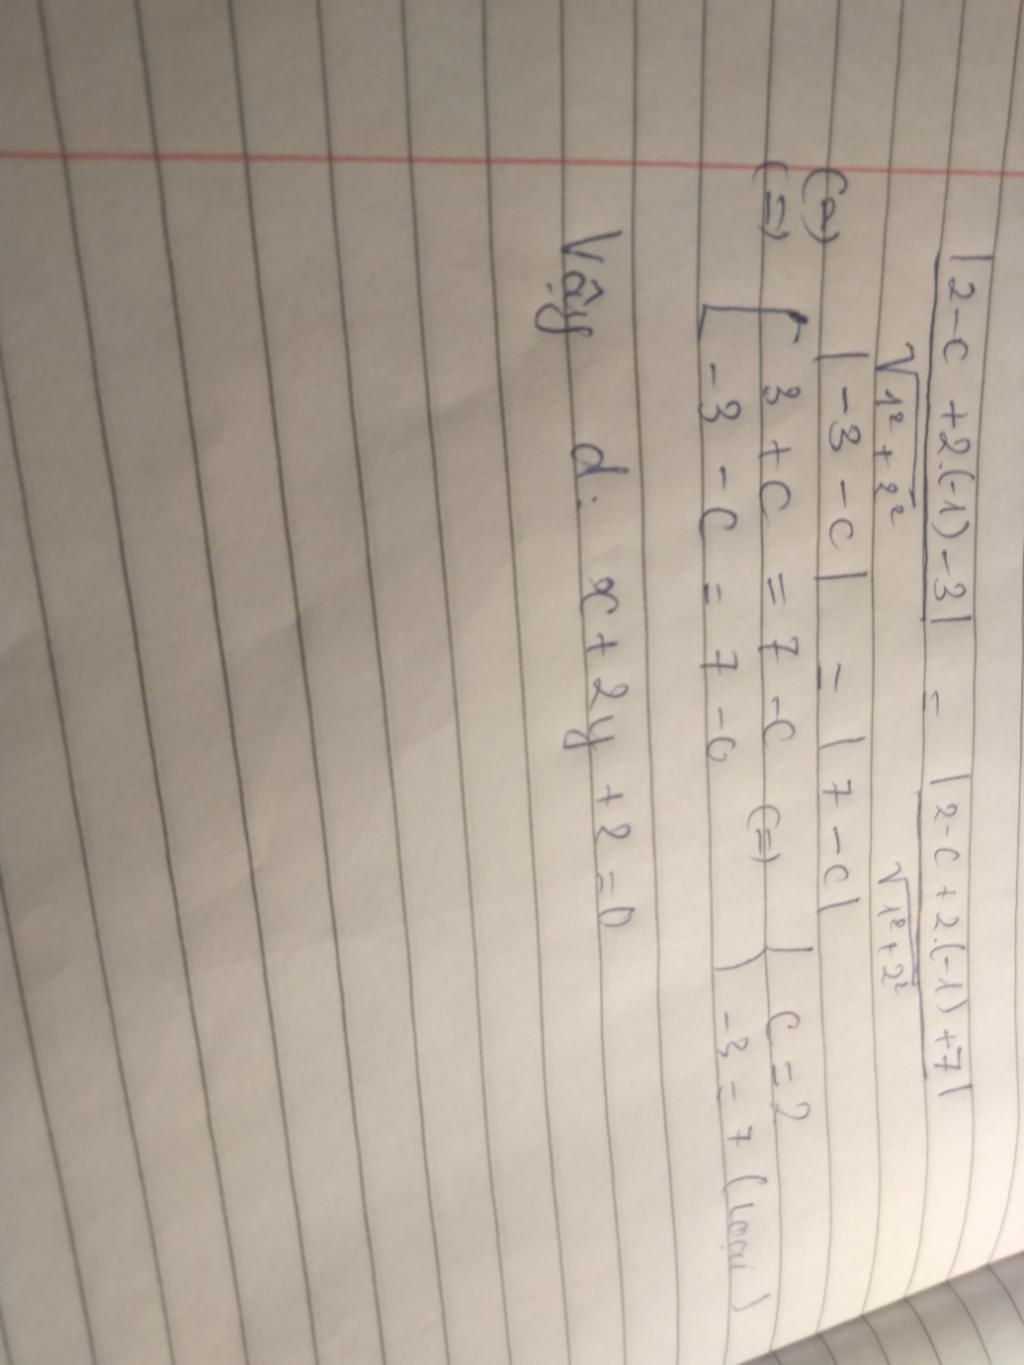 |2-c + 2.(-1) - 3| / √1² + 2² = |2-c + 2.(-1) + 7| / √1² + 2²
(=) |-3 - c| = |7 - c|
(=) [ 3 + c = 7 - c (=) | c = 2
[ -3 - c = 7 - c ) -3 = 7 (loại)
Vậy d: x + 2y + 2 = 0